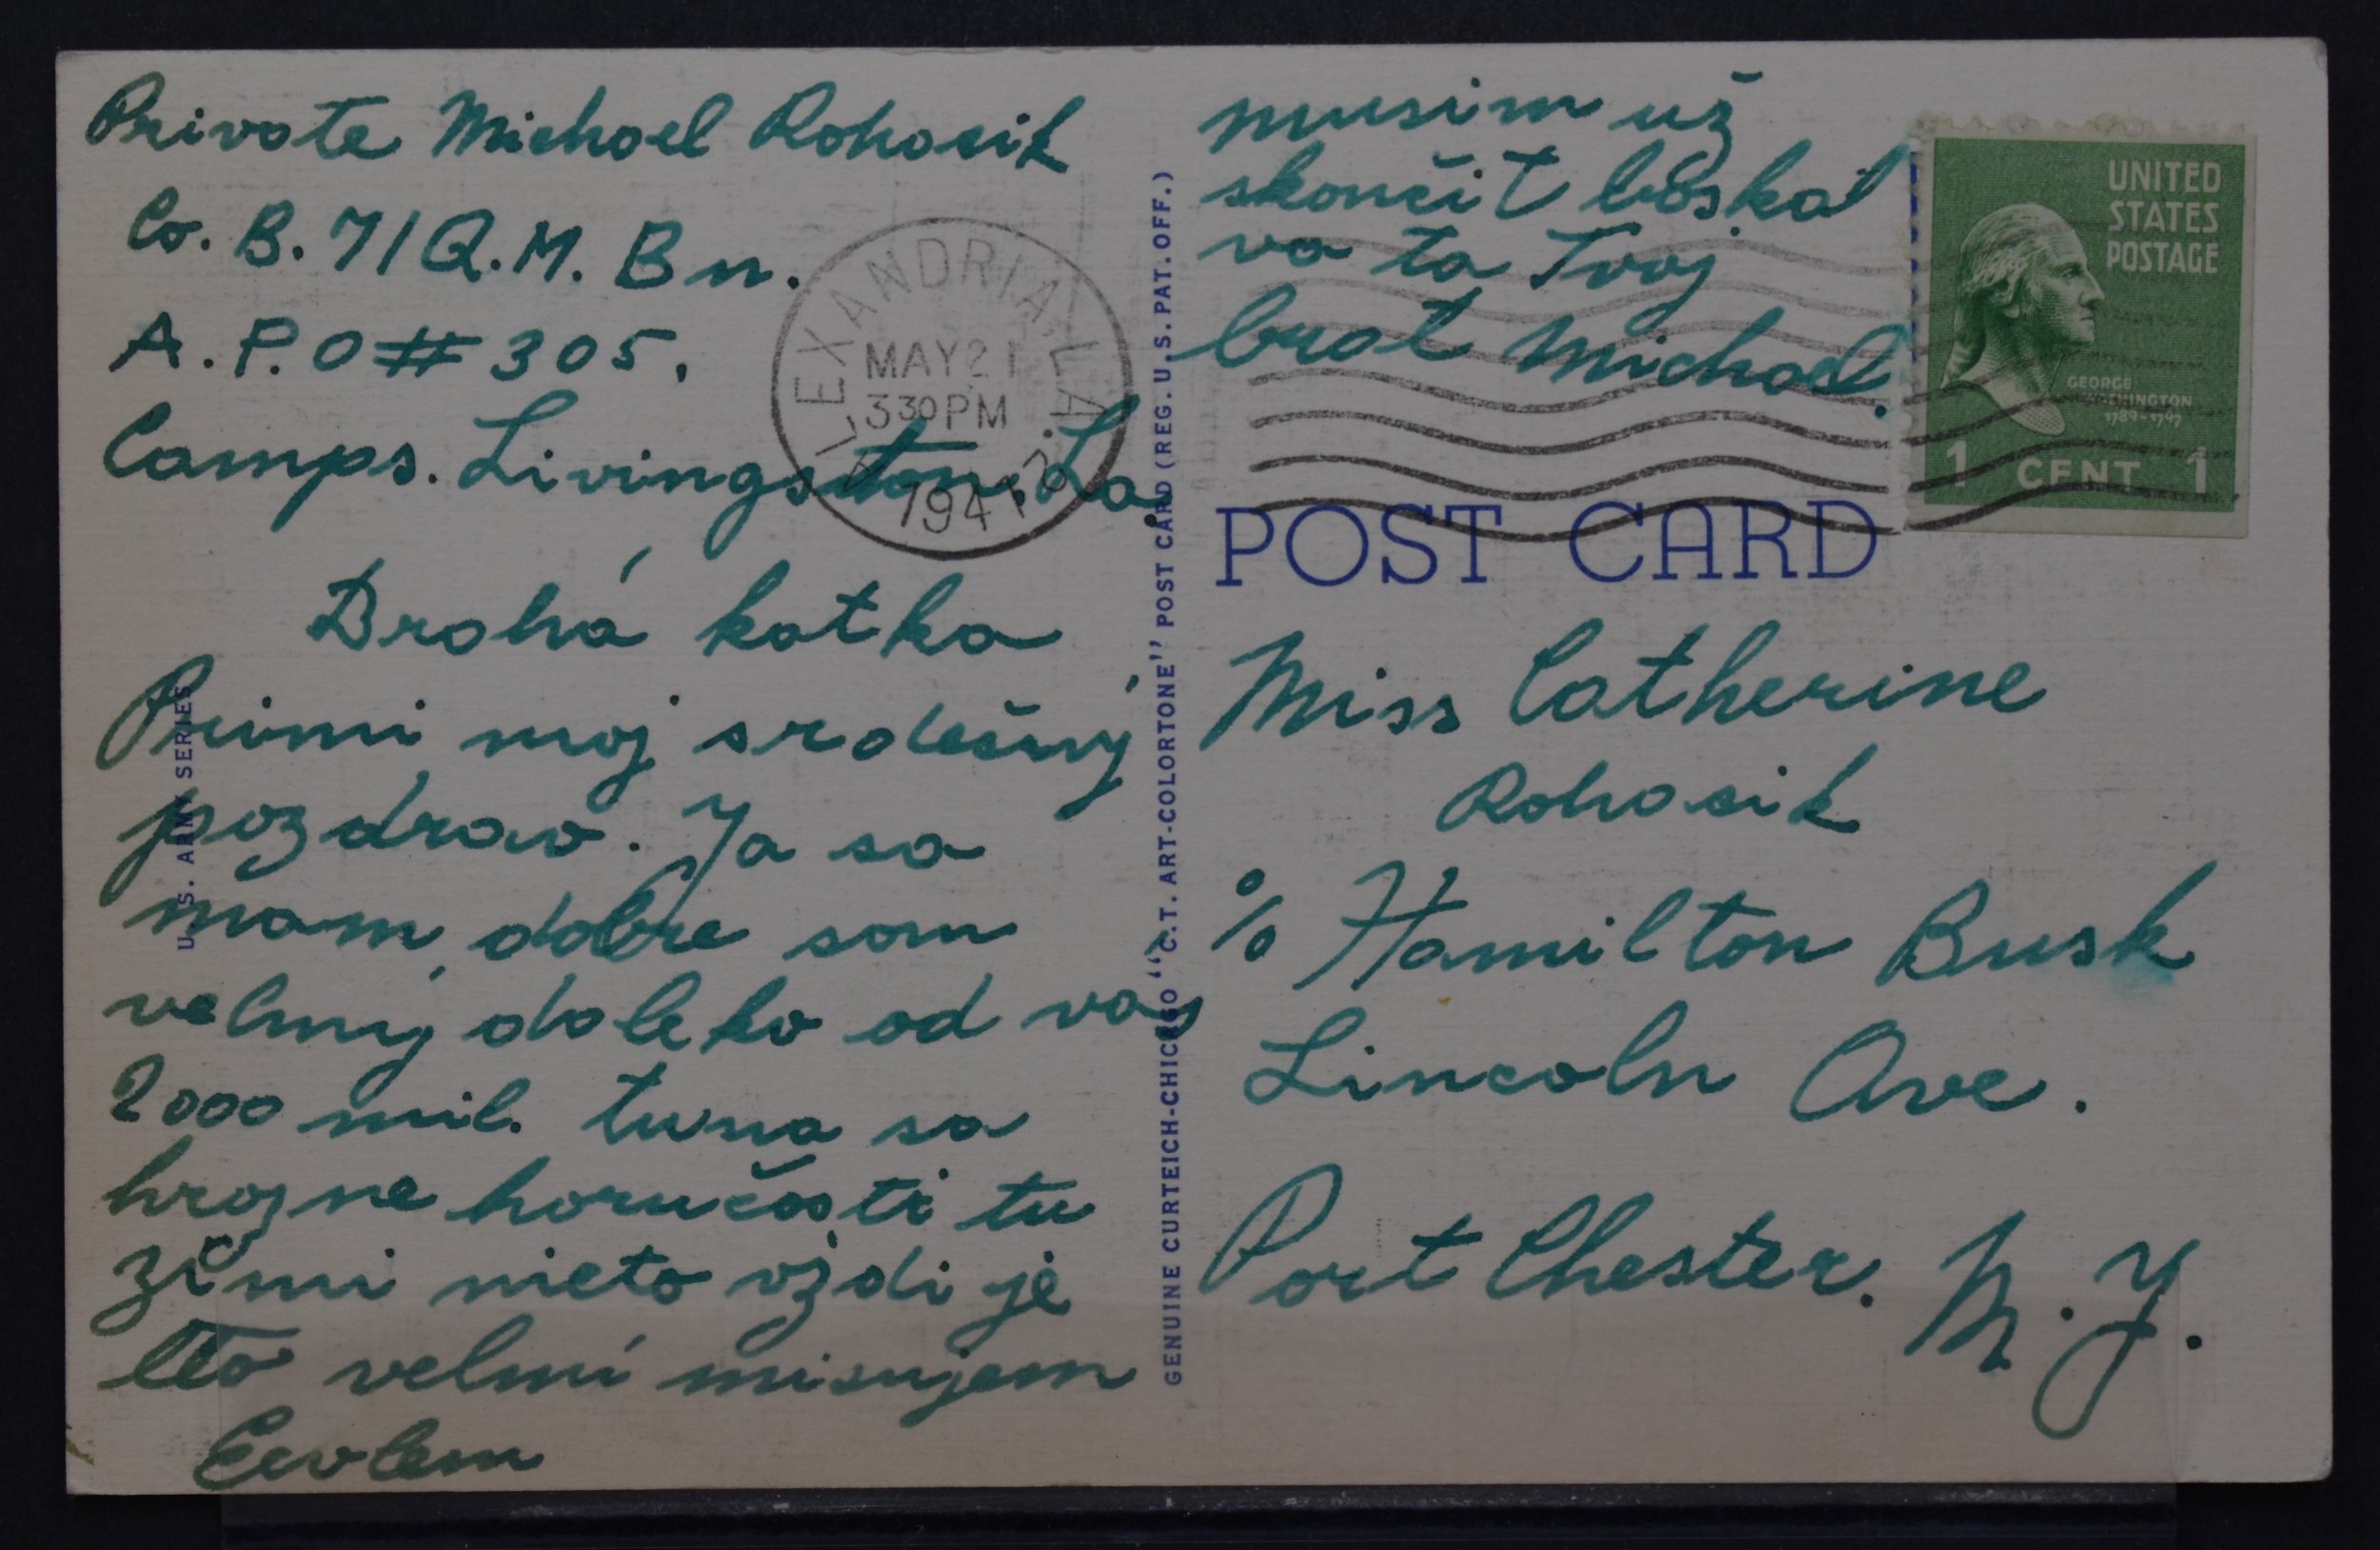 Private Michael Rohacik
Co. B. 71 Q.M. Bn.
A.P.O # 305.
Camps. Livingston. La.
Drahá katka
Primi moj srdečný
pozdrav. Ja sa
mam dobre som
velmy daleko od vas
2000 mil. tuna sa
hrozne horučosti tu
zimi nieto vzdi je
leto velmi misujem
musim už
skončit boskal
va ta Tvoj
brat Michael.
UNITED
STATES
POSTAGE
GEORGE
WASHINGTON
1789-1797
1 CENT 1
ALEXANDRIA, LA.
MAY 21
330 PM
1941
POST CARD
Miss Catherine
Rohacik
c/o Hamilton Busk
Lincoln Ave.
Port Chester. N.Y.
U.S. ARMY SERIES
GENUINE CURTEICH-CHICAGO "C.T. ART-COLORTONE" POST CARD (REG. U.S. PAT. OFF.)